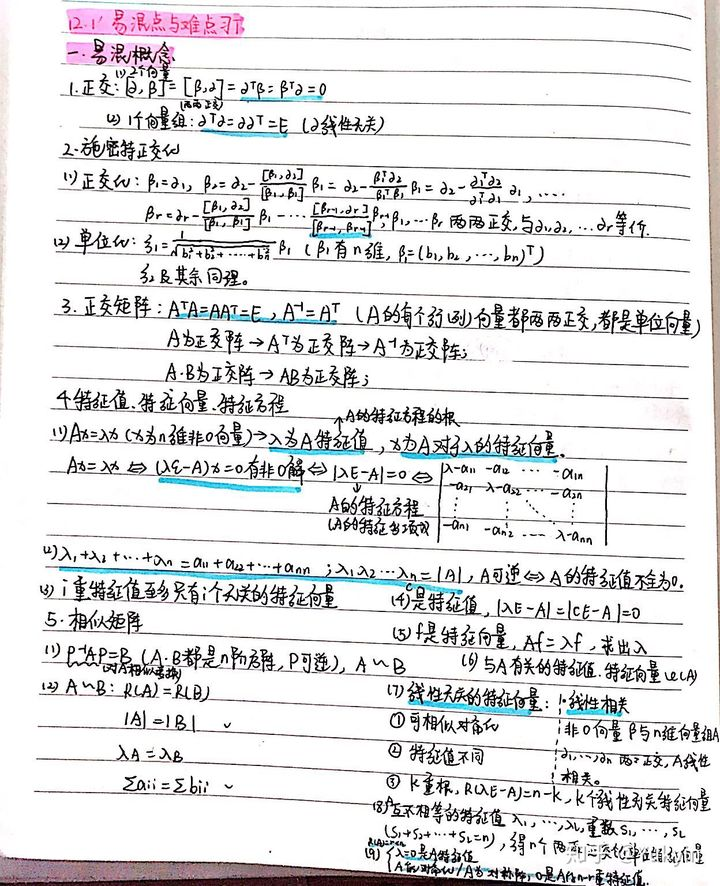 12.1' 易混点与难点习
一.易混概念
1.正交: (1) 2个向量 [α,β]=[β,α]=αᵀβ=βᵀα=0
(两两正交)
(2) 1个向量组: αᵀα=ααᵀ=E (α线性无关)
2.施密特正交化
(1) 正交化: β₁=α₁, β₂=α₂-[β₁,α₂]/[β₁,β₁] β₁=α₂-β₁ᵀα₂/β₁ᵀβ₁ β₁=α₂-α₁ᵀα₂/α₁ᵀα₁ α₁, ....
βr=αr-[β₁,α₂]/[β₁,β₁] β₁-...[βr-1,αr]/[βr-1,βr-1] βr-1, β₁,...βr 两两正交,与α₁,α₂,...αr等价.
(2) 单位化: ξ₁=1/√b₁²+b₂²+……+bn² β₁ (β₁有n维, β₁=(b₁,b₂,…,bn)ᵀ)
ξ₂及其余同理。
3.正交矩阵: AᵀA=AAᵀ=E, A⁻¹=Aᵀ (A的每个行(列)向量都两两正交,都是单位向量)
A为正交阵→Aᵀ为正交阵→A⁻¹为正交阵;
A.B为正交阵→AB为正交阵;
4.特征值.特征向量.特征方程
↗A的特征方程的根
(1) Ax=λx (x为n维非0向量)→λ为A特征值, x为A对于λ的特征向量。
Ax=λx ⇔ (λE-A)x=0有非0解 ⇔ |λE-A|=0 ⇔ |λ-a₁₁ -a₁₂ … -a₁n
-a₂₁ λ-a₂₂ … -a₂n
A的特征方程
(A的特征多项式) -an₁ -an₂ … λ-ann|
(2) λ₁+λ₂+…+λn=a₁₁+a₂₂+…+ann ; λ₁λ₂…λn=|A|, A可逆⇔A的特征值不全为0.
(3) i重特征值至多只有i个无关的特征向量
(4) C是特征值, |λE-A|=|CE-A|=0
5.相似矩阵
(5) f是特征向量, Af=λf, 求出λ
(1) P⁻¹AP=B (A.B都是n阶方阵, P可逆), A∽B
(对A相似变换)
(6) 与A有关的特征值.特征向量 φ(A)
(2) A∽B: R(A)=R(B)
|A|=|B|
λA=λB
Σaii=Σbii
(7) 线性无关的特征向量:
①可相似对角化
②特征值不同
③k重根, R(λE-A)=n-k, k个线性无关特征向量
1.线性相关
非0向量β与n维向量组A
α₁,…,αn两两正交, A线性
相关。
(8) A互不相等的特征值 λ₁,…,λL,重数S₁,…,SL
(S₁+S₂+…+SL=n), 得n个两两正交的单位特征向量
(9) λ=0是A特征值